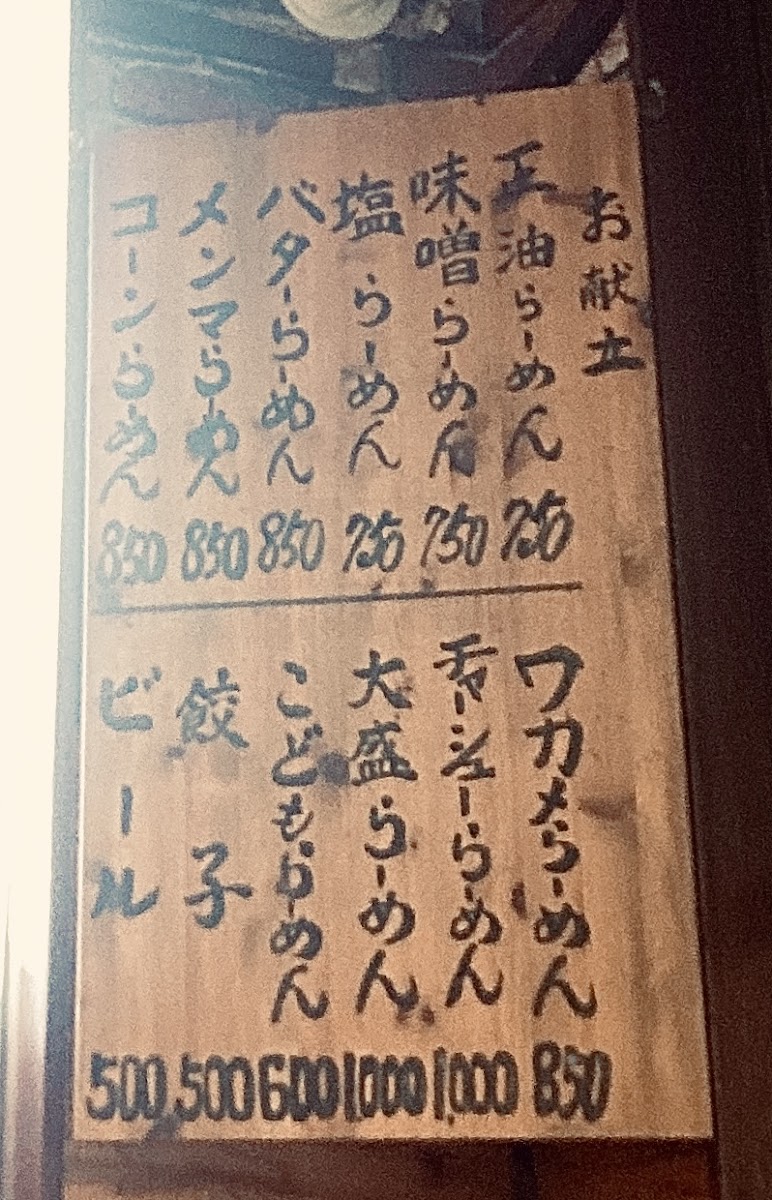 お献立
正油らーめん 750
味噌らーめん 750
塩らーめん 750
バターらーめん 850
メンマらーめん 850
コーンらーめん 850
ワカメらーめん 850
チャーシューらーめん 1,000
大盛らーめん 1000
こどもらーめん 600
餃子 500
ビール 500